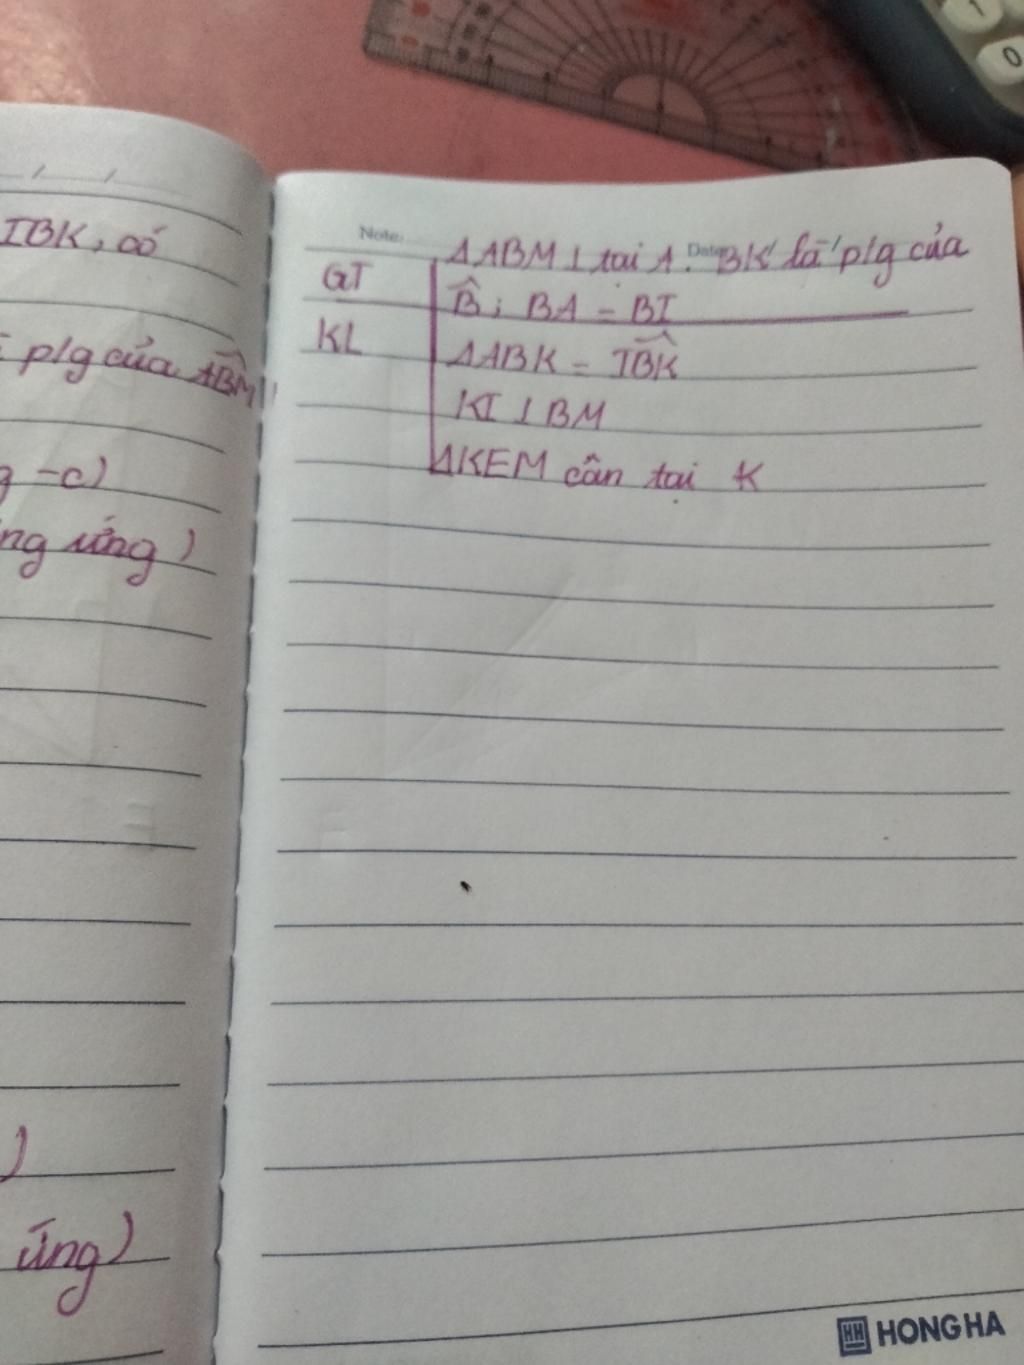 IBK, có
p/g của ABM
g-c)
ng ứng)
)
ứng)
Note:
Date
ΔABM ⊥ tại A. BK là p/g của
GT
B̂; BA = BI
KL
ΔABK = IBK
KI ⊥ BM
ΔKEM cân tại K
HH HONG HA
1
0